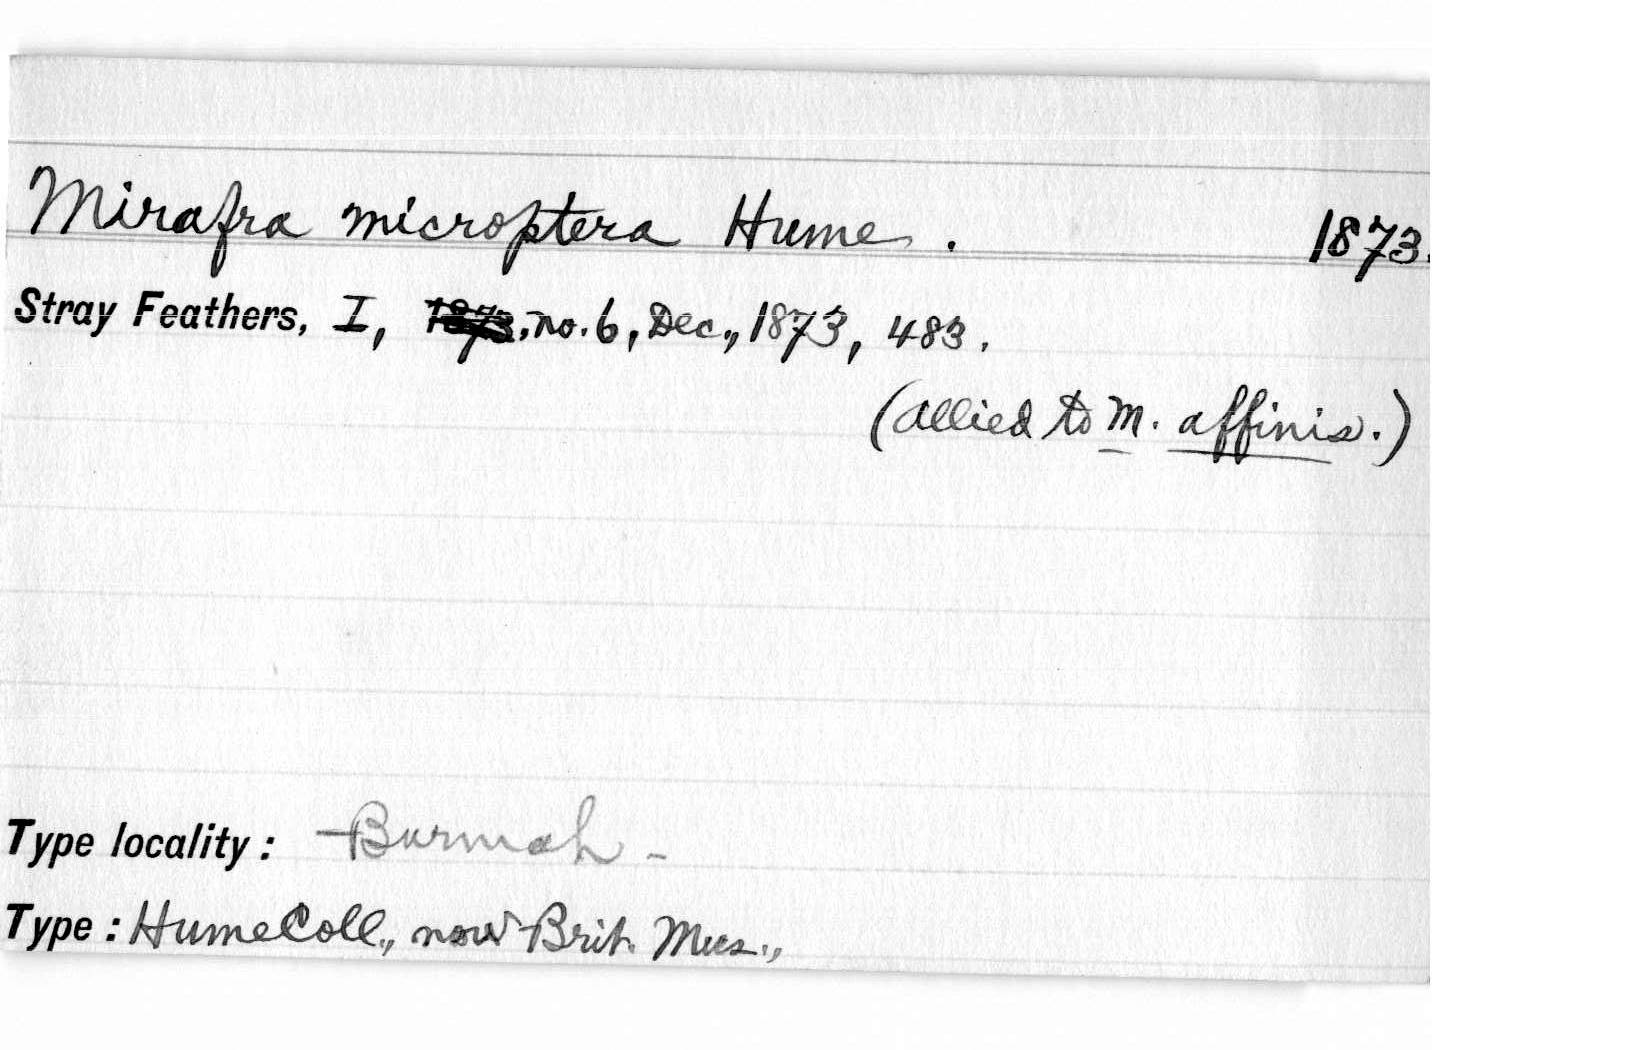 Mirafra microptera Hume. 1873.
Stray Feathers, I, 1873, no. 6, Dec., 1873, 483.
(allied to M. affinis.)
Type locality: Burmah -
Type: Hume Coll., now Brit. Mus.,